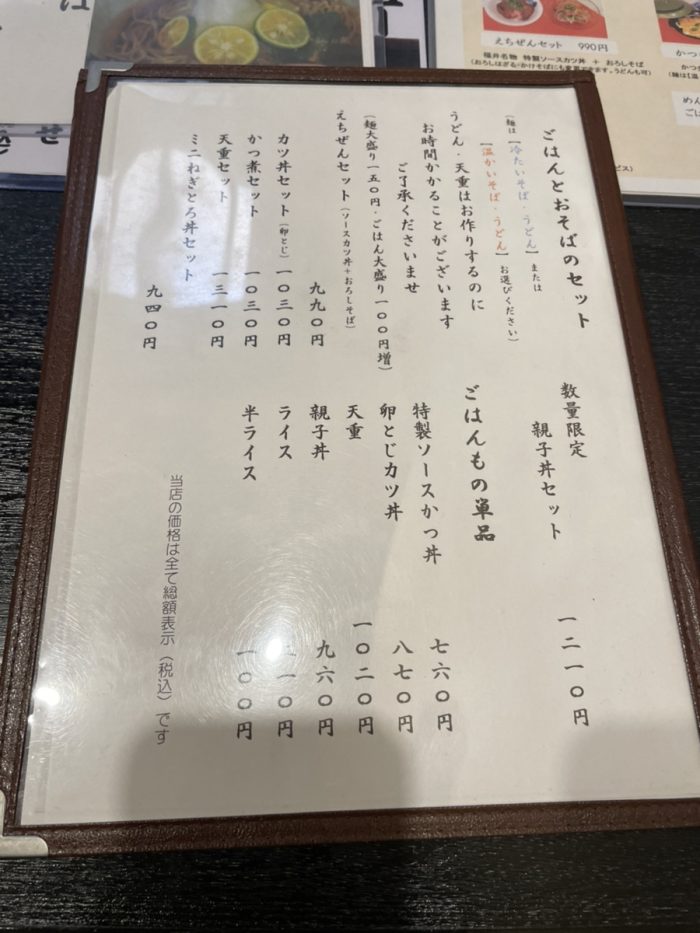 ごはんとおそばのセット
(麺は【冷たいそば・うどん】または
【温かいそば・うどん】お選びください)
うどん・天重はお作りするのに
お時間かかることがございます
ご了承くださいませ
(麺大盛り一五〇円・ごはん大盛り一〇〇円増)
えちぜんセット(ソースカツ丼+おろしそば)
九九〇円
カツ丼セット(卵とじ)一〇三〇円
かつ煮セット 一〇三〇円
天重セット 一三一〇円
ミニねぎとろ丼セット
九四〇円
数量限定
親子丼セット 一二一〇円
ごはんもの単品
特製ソースかつ丼 七六〇円
卵とじカツ丼 八七〇円
天重 一〇二〇円
親子丼 九六〇円
ライス 一〇円
半ライス 一〇〇円
当店の価格は全て総額表示(税込)です
えちぜんセット 990円
福井名物 特製ソースカツ丼 + おろしそば
(おろしはざる・かけそばにも変更できます。うどんも可)